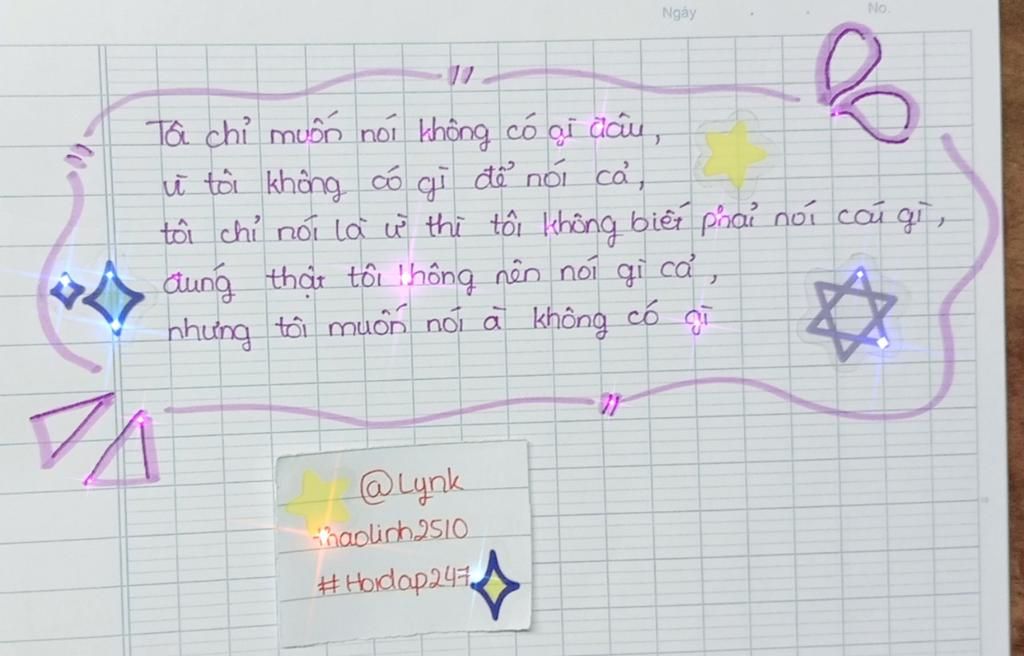 Ngày . . No.
Tôi chỉ muốn nói không có gì đâu,
vì tôi không có gì để nói cả,
tôi chỉ nói là ừ thì tôi không biết phải nói cái gì,
đúng thật tôi không nên nói gì cả,
nhưng tôi muốn nói à không có gì
@Lynk
thaolinh2510
#Hoidap247